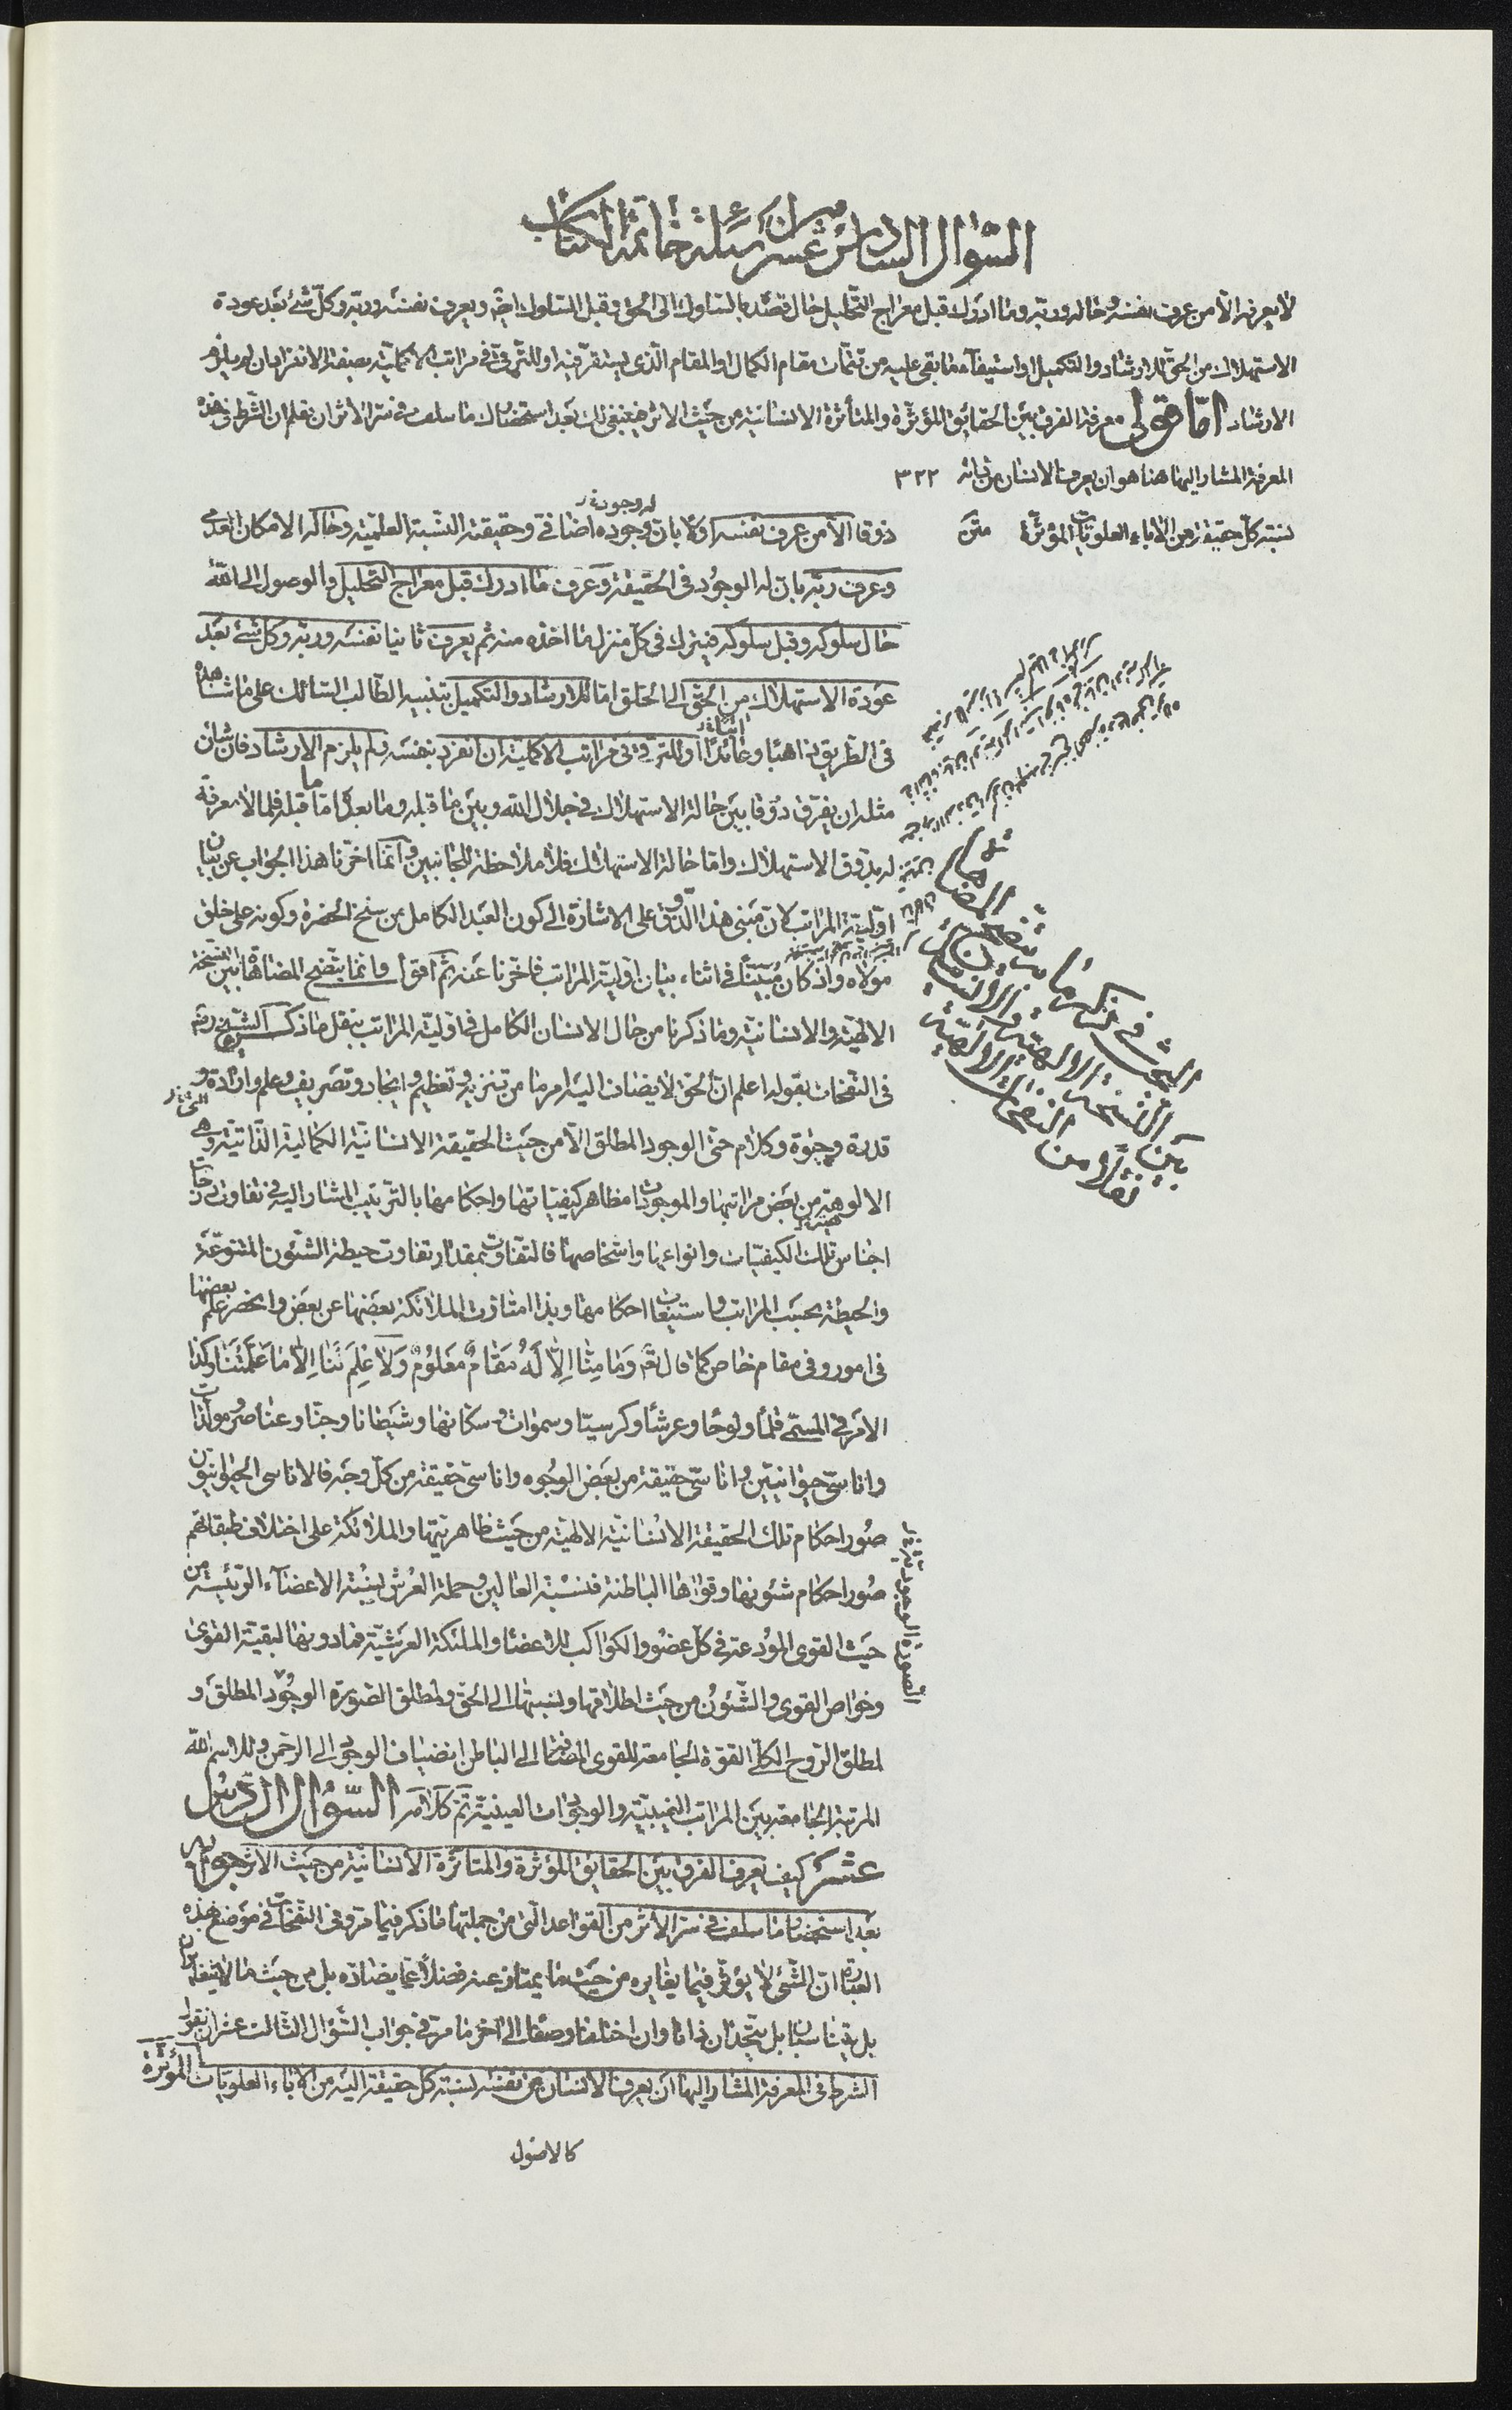 السّؤال السادس عشر من أسئلة خاتمة الكتاب
لا يعرفه الّا من عرف نفسه وحاله وربّه وما ادرك قبل معراج التّحليل حال قصده بالسّلوك الى الحق وقبل السّلوك ايضا ويعرف نفسه وربّه وكلّ شئ بعد عودة
الاستهلاك من الحقّ للارشاد والتكميل او استيفاء ما بقى عليه من تتمّات مقام الكمال او المقام الّذى يستقرّ فيه او للترقّى فى مراتب الاكمليّة بصفة الانفراد ان لم يلزم
الارشاد امّا قولى معرفة الفرق بين الحقائق المؤثّرة والمتأثّرة الانسانيّة من حيث الاثر فينبغى لك بعد استحضارك ما سلف فى سرّ الاثر ان تعلم ان الشّرط فى هذه
المعرفة المشار اليها هنا هو ان يعرف الانسان من ذاته ٣٢٢
نسبة كلّ حقيقة من الآباء العلويّات المؤثّرة متن
ذوقا الّا من عرف نفسه اوّلا بان وجوده اضافى وحقيقته النّسبة العلميّة وحاله الامكان العدمى
وعرف ربّه بان له الوجود فى الحقيقة وعرف ما ادرك قبل معراج التحليل والوصول الى الله
حال سلوكه وقبل سلوكه فيترك فى كلّ منزل ما اخذه منه ثم يعرف ثانيا نفسه وربّه وكلّ شئ بعد
عودة الاستهلاك من الحقّ الى الخلق امّا للارشاد والتكميل بتنبيه الطّالب السّالك على ما شاهده
فى الطّريق ذاهبا وعائدا او للترقى فى مراتب الاكملية ان انفرد بنفسه ولم يلزم الارشاد فان شان
مثله ان يفرّق ذوقا بين حالة الاستهلاك فى جلال الله وبين ما قبله وما بعده امّا ما قبله فلما لا معرفة
له بذوق الاستهلاك وامّا حالة الاستهلاك فلا ملاحظة للجانبين وانّما اخّرنا هذا الجواب عن بيان
اوّليّة المراتب لانّ مبنى هذا الذّوق على الاشارة الى كون العبد الكامل من سنخ الحضرة وكونه على خلق
مولاه واذ كان مبيّنا فى اثناء بيان اوّليّة المراتب فاخّرنا عنه ثم اقول وانما يتّضح المضاهاة بين النسخة
الالهيّة والانسانيّة وما ذكرنا من حال الانسان الكامل فى اوّليّة المراتب بنقل ما ذكره الشّيخ رضى
فى النّفحات بقوله اعلم انّ الحقّ لا يضاف اليه امر ما من تنزيه وتعظيم وايجاد وتصريف وعلم وارادة و
قدرة وحيوة وكلام حتّى الوجود المطلق الّا من حيث الحقيقة الانسانيّة الكماليّة الذّاتيّة وهى الّتى
الالوهية من بعض مراتبها والموجودات مظاهر كيفيّاتها واحكامها بالترتيب المشار اليه فى تفاوت درجات
اجناس تلك الكيفيّات وانواعها واشخاصها فالتفاوت بمقدار تفاوت حيطة الشّئون المتنوّعة
والحيطة بحسب المراتب واستتباعات احكامها وبذا امتازت الملائكة بعضها عن بعض وانحصر علم بعضها
فى امور وفى مقام خاصّ كما قال تعم وَمَا مِنَّا اِلَّا لَهُ مَقَامٌ مَعْلُومٌ وَلَا عِلْمَ لَنَا اِلَّا مَا عَلَّمْتَنَا وكذا
الامر فى المسمّى قلما ولوحا وعرشا وكرسيّا وسموات وسكّانها وشيطانا وجنّا وعناصر ومولّدات
واناسىّ حيوانيّين واناسىّ حقيقة من بعض الوجوه واناسىّ حقيقة من كلّ وجه فالاناسى الحيوانيّون
صور احكام تلك الحقيقة الانسانيّة الالهيّة من حيث ظاهريّتها والملائكة على اختلاف طبقاتهم
صور احكام شئونها وقواها الباطنة فنسبة العالين وحملة العرش نسبة الاعضاء الرّئيسة من
حيث القوى المودعة فى كلّ عضو والكواكب للاعضاء والملئكة العرشيّة فما دونها لبقيّة القوى
وخواصّ القوى والشّئون من حيث اطلاقها ونسبتها الى الحقّ ولمطلق الصّورة الوجود المطلق و
لمطلق الرّوح الكلّى القوّة الجامعة للقوى المضافة الى الباطن انضياف الوجود الى الرّحمن وللاسم الله
المرتبة الجامعة بين المراتب الغيبيّة والوجودات العينيّة تمّ كلامه السّؤال السّادس
عشر كيف يعرف الفرق بين الحقايق المؤثّرة والمتأثّرة الانسانيّة من حيث الاثر جوابه
بعد استحضار ما سلف فى سرّ الاثر من القواعد الّتى من جملتها ما ذكر فيما مرّ وفى النّفحات فى موضع بهذه
العبارة انّ الشّئ لا يؤثّر فيما يغايره من حيث ما يمتاز عنه فضلا عمّا يضادّه بل من حيث ما لا يتغايران
بل يتناسبان بل يتّحدان ذاتا وان اختلفا وصفا الى آخر ما مرّ فى جواب السّؤال الثّالث عشر ان نقول
الشرط فى المعرفة المشار اليها ان يعرف الانسان من نفسه نسبة كلّ حقيقة اليه من الآباء العلويّات المؤثّرة
كالاصول
البحث فى ذكر ما به يتّضح المضاهاة
بين النّسخة الالهيّة والانسانيّة
نقلا من النّفحات الالهيّة
الصّورة الوجوديّة